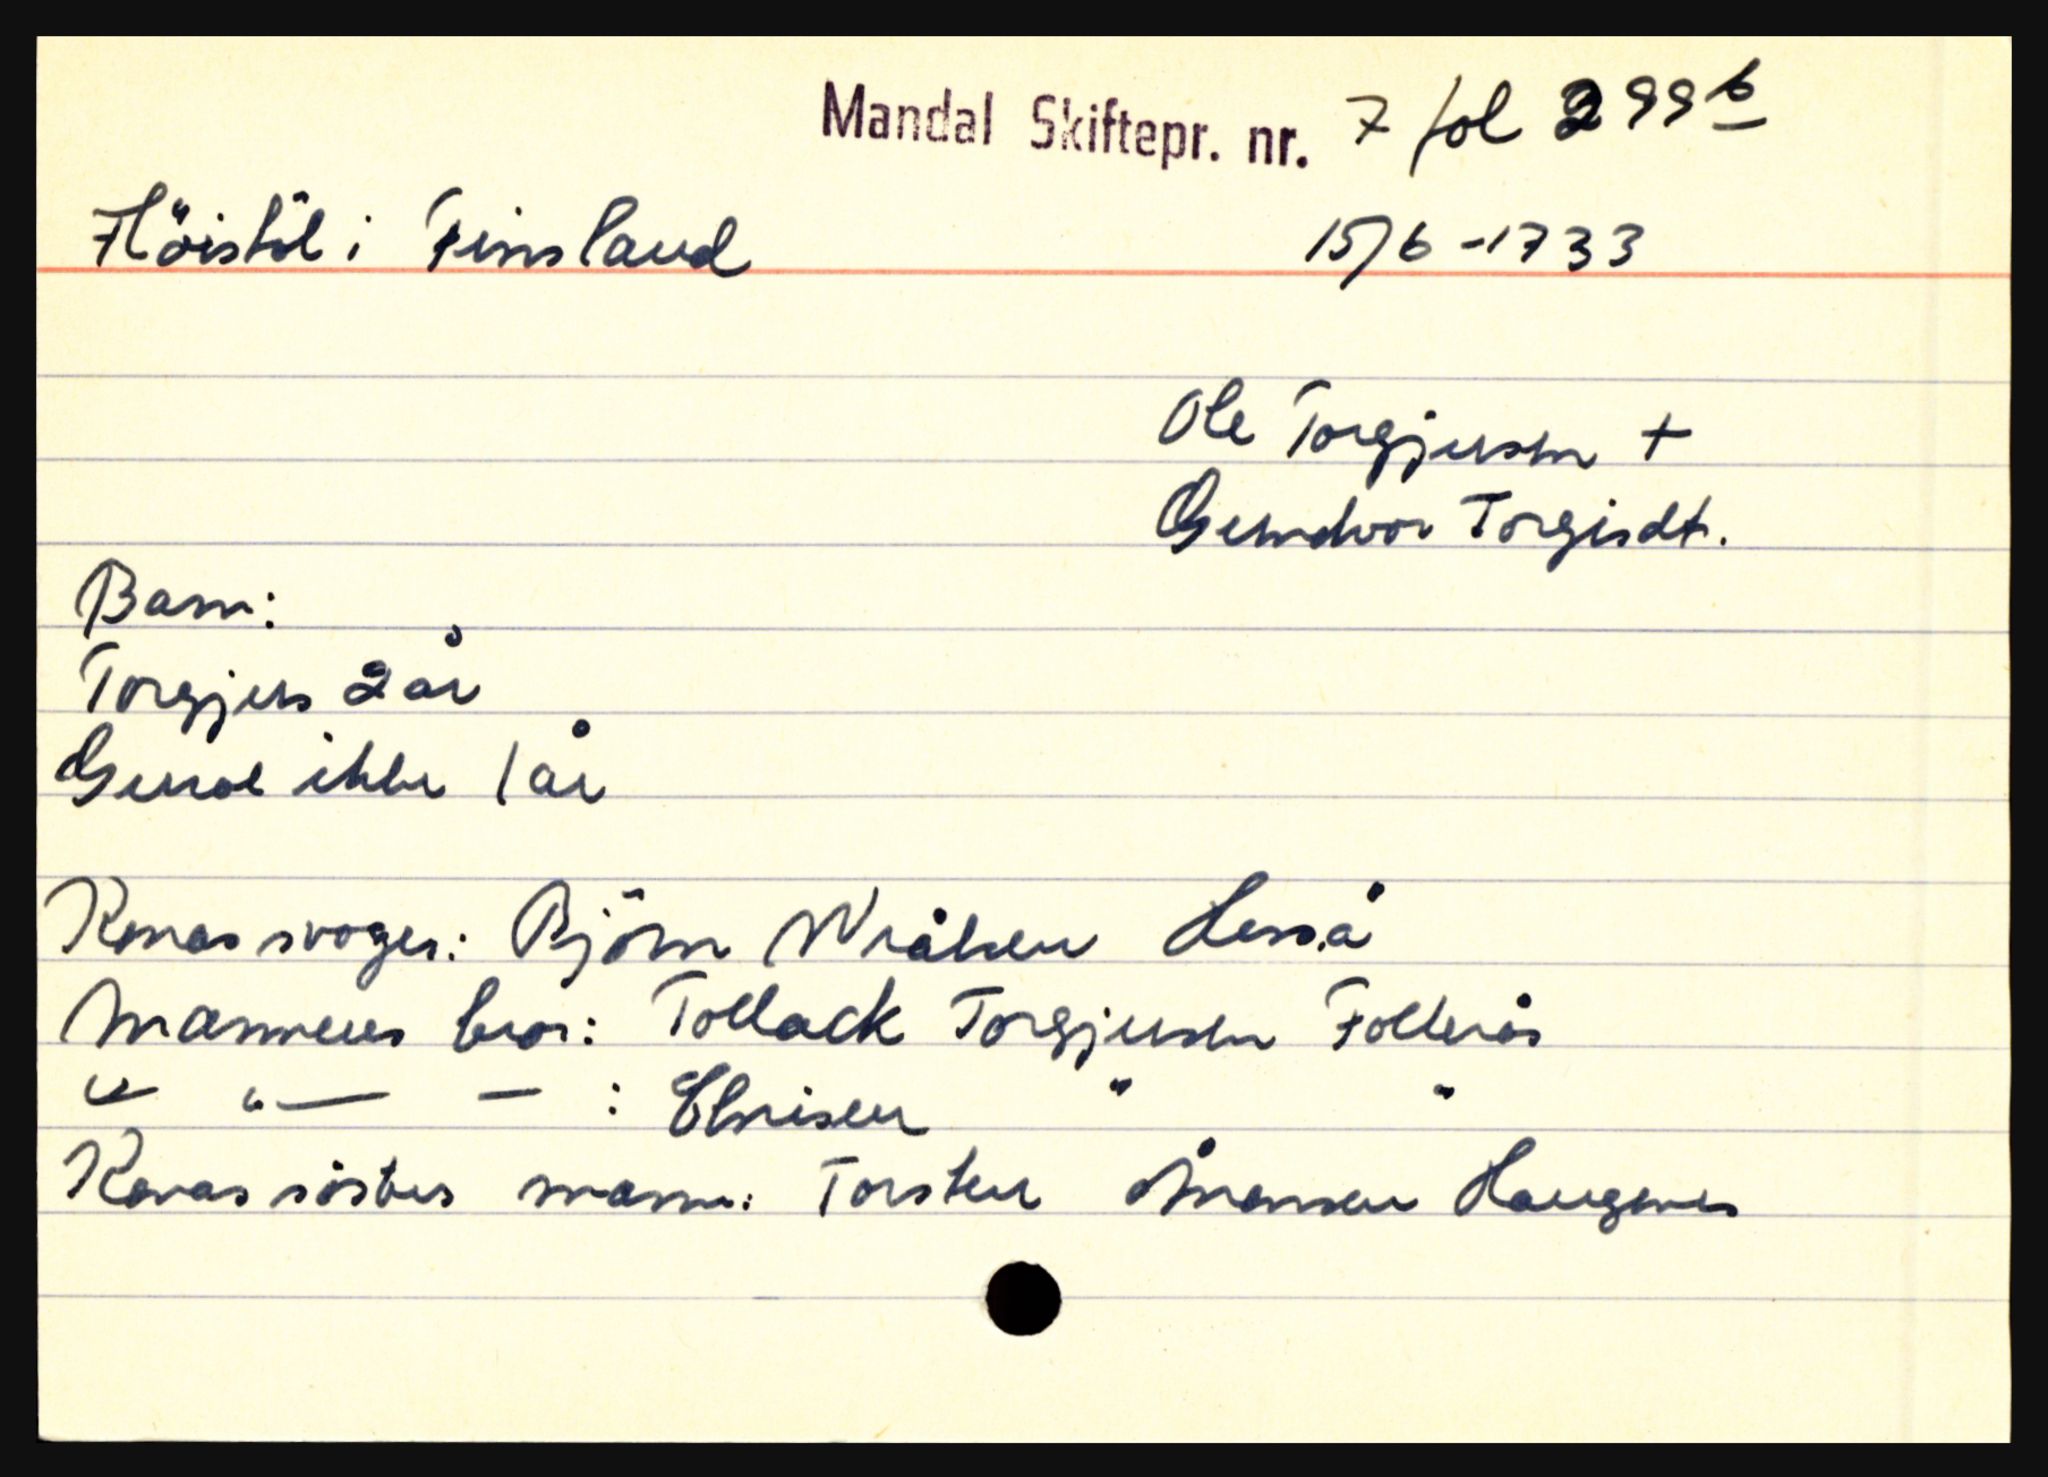 Mandal Skiftepr. nr. 7 fol 299b
Höistöl i Finsland 15/6-1733
Ole Torgjusen +
Gundvor Torgisdt.
Barn:
Torgjus 2 år
Guroe ikke 1 år
Konas svoger: Björn Wråhen
Mannens bror: Tollack Torgjusen Follerås
" " — — : Chrisen " "
Konas sösters mann: Torsten Ånensen Haugenes